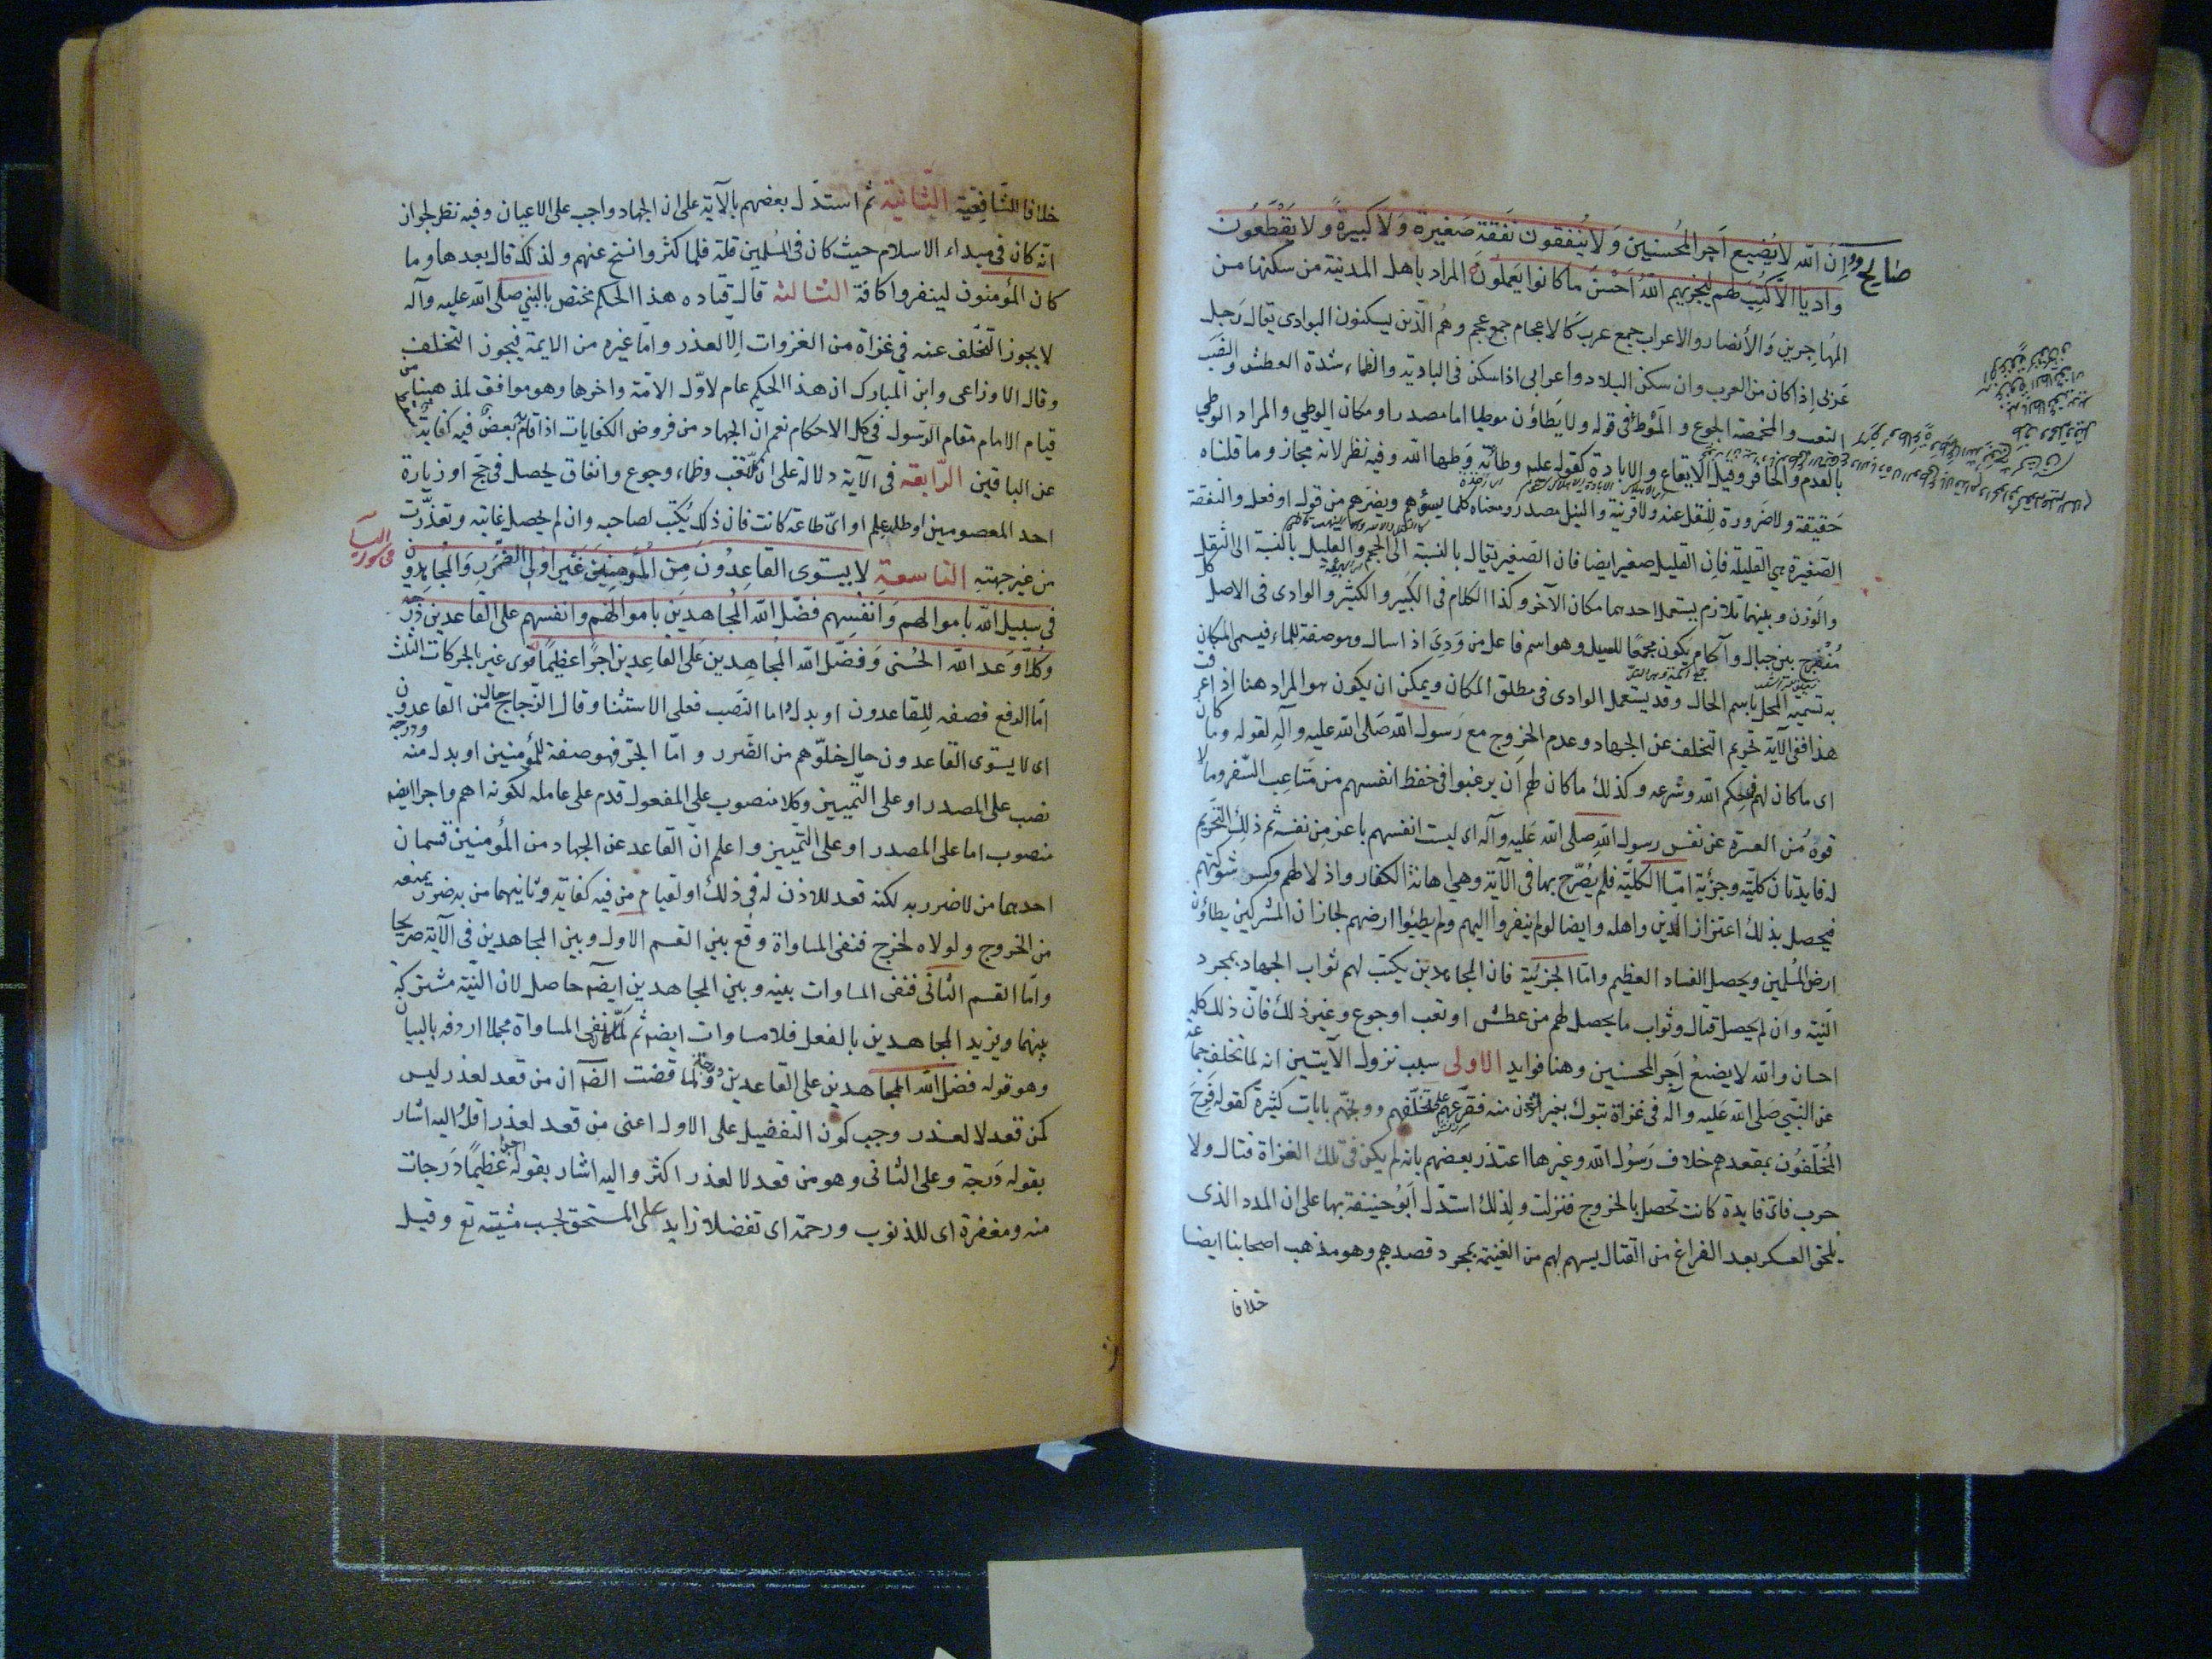 صالح ان الله لا يضيع اجر المحسنين ولا ينفقون نفقة صغيرة ولا كبيرة ولا يقطعون
واديا الا كتب لهم ليجزيهم الله احسن ما كانوا يعملون المراد باهل المدينة من سكنها من
المهاجرين والأنصار والاعراب جمع عرب كالاعجام جمع عجم وهم الذين يسكنون البوادى يقال رجل
عربى اذا كان من العرب وان سكن البلاد واعرابى اذا سكن فى البادية والظماء شدة العطش والنصب
التعب والمخمصة الجوع والموطئ فى قوله ولا يطاؤن موطيا اما مصدر او مكان الوطي والمراد الوطي
بالقدم والحافر وقيل الايقاع والابادة كقوله عليه وطأته وطها الله وفيه نظر لانه مجاز وما قلناه
حقيقة ولا ضرورة للنقل عنه ولا قرينة والنيل مصدر ومعناه كلما يسؤهم ويضرهم من قول او فعل والنفقة
الصغيرة هى القليلة فان القليل صغير ايضا فان الصغير يقال بالنسبة الى الحجم والقليل بالنسبة الى الثقل
والوزن وبينهما تلازم يستعمل احدهما مكان الآخر وكذا الكلام فى الكبير والكثير والوادى فى الاصل كل
منفرج بين جبال وآكام يكون مجمعا للسيل وهو اسم فاعل من ودى اذا سال وهو صفة للماء فيسمى المكان
به تسمية المحل باسم الحال وقد يستعمل الوادى فى مطلق المكان ويمكن ان يكون هو المراد هنا اذا عرفت
هذا ففى الآية تحريم التخلف عن الجهاد وعدم الخروج مع رسول الله صلى الله عليه وآله لقوله وما كان
اى ما كان لهم فى حكم الله وشرعه وكذلك ما كان لهم ان يرغبوا فى حفظ انفسهم من متاعب السفر وما لا
قوه من العسرة عن نفس رسول الله صلى الله عليه وآله اى ليست انفسهم باعز من نفسه ثم ذلك التحريم
له فايدتان كلية وجزئية اما الكلية فلم يصرح بها فى الآية وهى اهانة الكفار واذلالهم وكسر شوكتهم
فيحصل بذلك اعتزاز الدين واهله وايضا لو لم ينفروا اليهم ولم يطئوا ارضهم لجاز ان المشركين يطاؤن
ارض المسلمين ويحصل الفساد العظيم واما الجزئية فان المجاهدين يكتب لهم ثواب الجهاد بمجرد
النية وان لم يحصل قتال وثواب ما يحصل لهم من عطش او تعب او جوع وغير ذلك فان ذلك كله
احسان والله لا يضيع اجر المحسنين وهنا فوايد الاولى سبب نزول الآيتين انه لما تخلف جماعة
عن النبي صلى الله عليه وآله فى غزاة تبوك بغير اذن منه فقرعهم على تخلفهم ووبخهم بايات كثيرة كقوله فرح
المخلفون بمقعدهم خلاف رسول الله وغيرها اعتذر بعضهم بانه لم يكن فى تلك الغزاة قتال ولا
حرب فاى فايدة كانت تحصل بالخروج فنزلت ولذلك استدل ابو حنيفة بها على ان المدد الذى
يلحق العسكر بعد الفراغ من القتال يسهم لهم من الغنيمة بمجرد قصدهم وهو مذهب اصحابنا ايضا
خلافا
خلافا للشافعية الثانية ثم استدل بعضهم بالآية على ان الجهاد واجب على الاعيان وفيه نظر لجواز
انه كان فى مبداء الاسلام حيث كان فى المسلمين قلة فلما كثروا نسخ عنهم ولذلك قال بعدها وما
كان المؤمنون لينفروا كافة الثالثة قال قتاده هذا الحكم مختص بالنبي صلى الله عليه وآله
لا يجوز التخلف عنه في غزاة من الغزوات الا لعذر واما غيره من الايمة فيجوز التخلف
وقال الاوزاعى وابن المبارك ان هذا الحكم عام لاول الامة واخرها وهو موافق لمذهبنا من
قيام الامام مقام الرسول فى كل الاحكام نعم ان الجهاد من فروض الكفايات اذا قام بعض فيه كفاية
عن الباقين الرابعة فى الآية دلالة على ان تعب وظماء وجوع وانفاق يحصل فى حج او زيارة
احد المعصومين او طلب علم او اى طاعة كانت فان ذلك يكتب لصاحبه وان لم يحصل غايته وتعذرت
من غير جهته التاسعة لا يستوى القاعدون من المؤمنين غير اولى الضرر والمجاهدون
فى سبيل الله باموالهم وانفسهم فضل الله المجاهدين باموالهم وانفسهم على القاعدين درجة
وكلا وعد الله الحسنى وفضل الله المجاهدين على القاعدين اجرا عظيما قرى غير بالحركات الثلث
اما الرفع فصفه للقاعدون او بدل واما النصب فعلى الاستثنا وقال الزجاج حال من القاعدون
اى لا يستوى القاعدون حال خلوهم من الضرر واما الجر فهو صفة للمؤمنين او بدل منه ودرجة
نصب على المصدر او على التمييز وكلا منصوب على المفعول قدم على عامله لكونه اهم واجرا ايضا
منصوب اما على المصدر او على التمييز واعلم ان القاعد عن الجهاد من المؤمنين قسمان
احدهما من لا ضرر به لكنه قعد للاذن له فى ذلك او لقيام من فيه كفاية وثانيهما من به ضرر يمنعه
من الخروج ولولاه لخرج فنفى المساواة وقع بين القسم الاول وبين المجاهدين فى الآية صريحا
واما القسم الثانى فنفى المساوات بينه وبين المجاهدين ايضا حاصل لان النية مشتركة
بينهما ويزيد المجاهدين بالفعل فلا مساوات ايضا ثم لما كان نفى المساواة مجملا اردفه بالبيان
وهو قوله فضل الله المجاهدين على القاعدين درجة ولما قضت الضرورة ان من قعد لعذر ليس
كمن قعد لا لعذر وجب كون التفضيل على الاول اعنى من قعد لعذر اقل واليه اشار
بقوله درجة وعلى الثانى وهو من قعد لا لعذر اكثر واليه اشار بقوله اجرا عظيما درجات
منه ومغفرة اى للذنوب ورحمة اى تفضلا زايد على المستحق بحسب مشيته تع وقيل